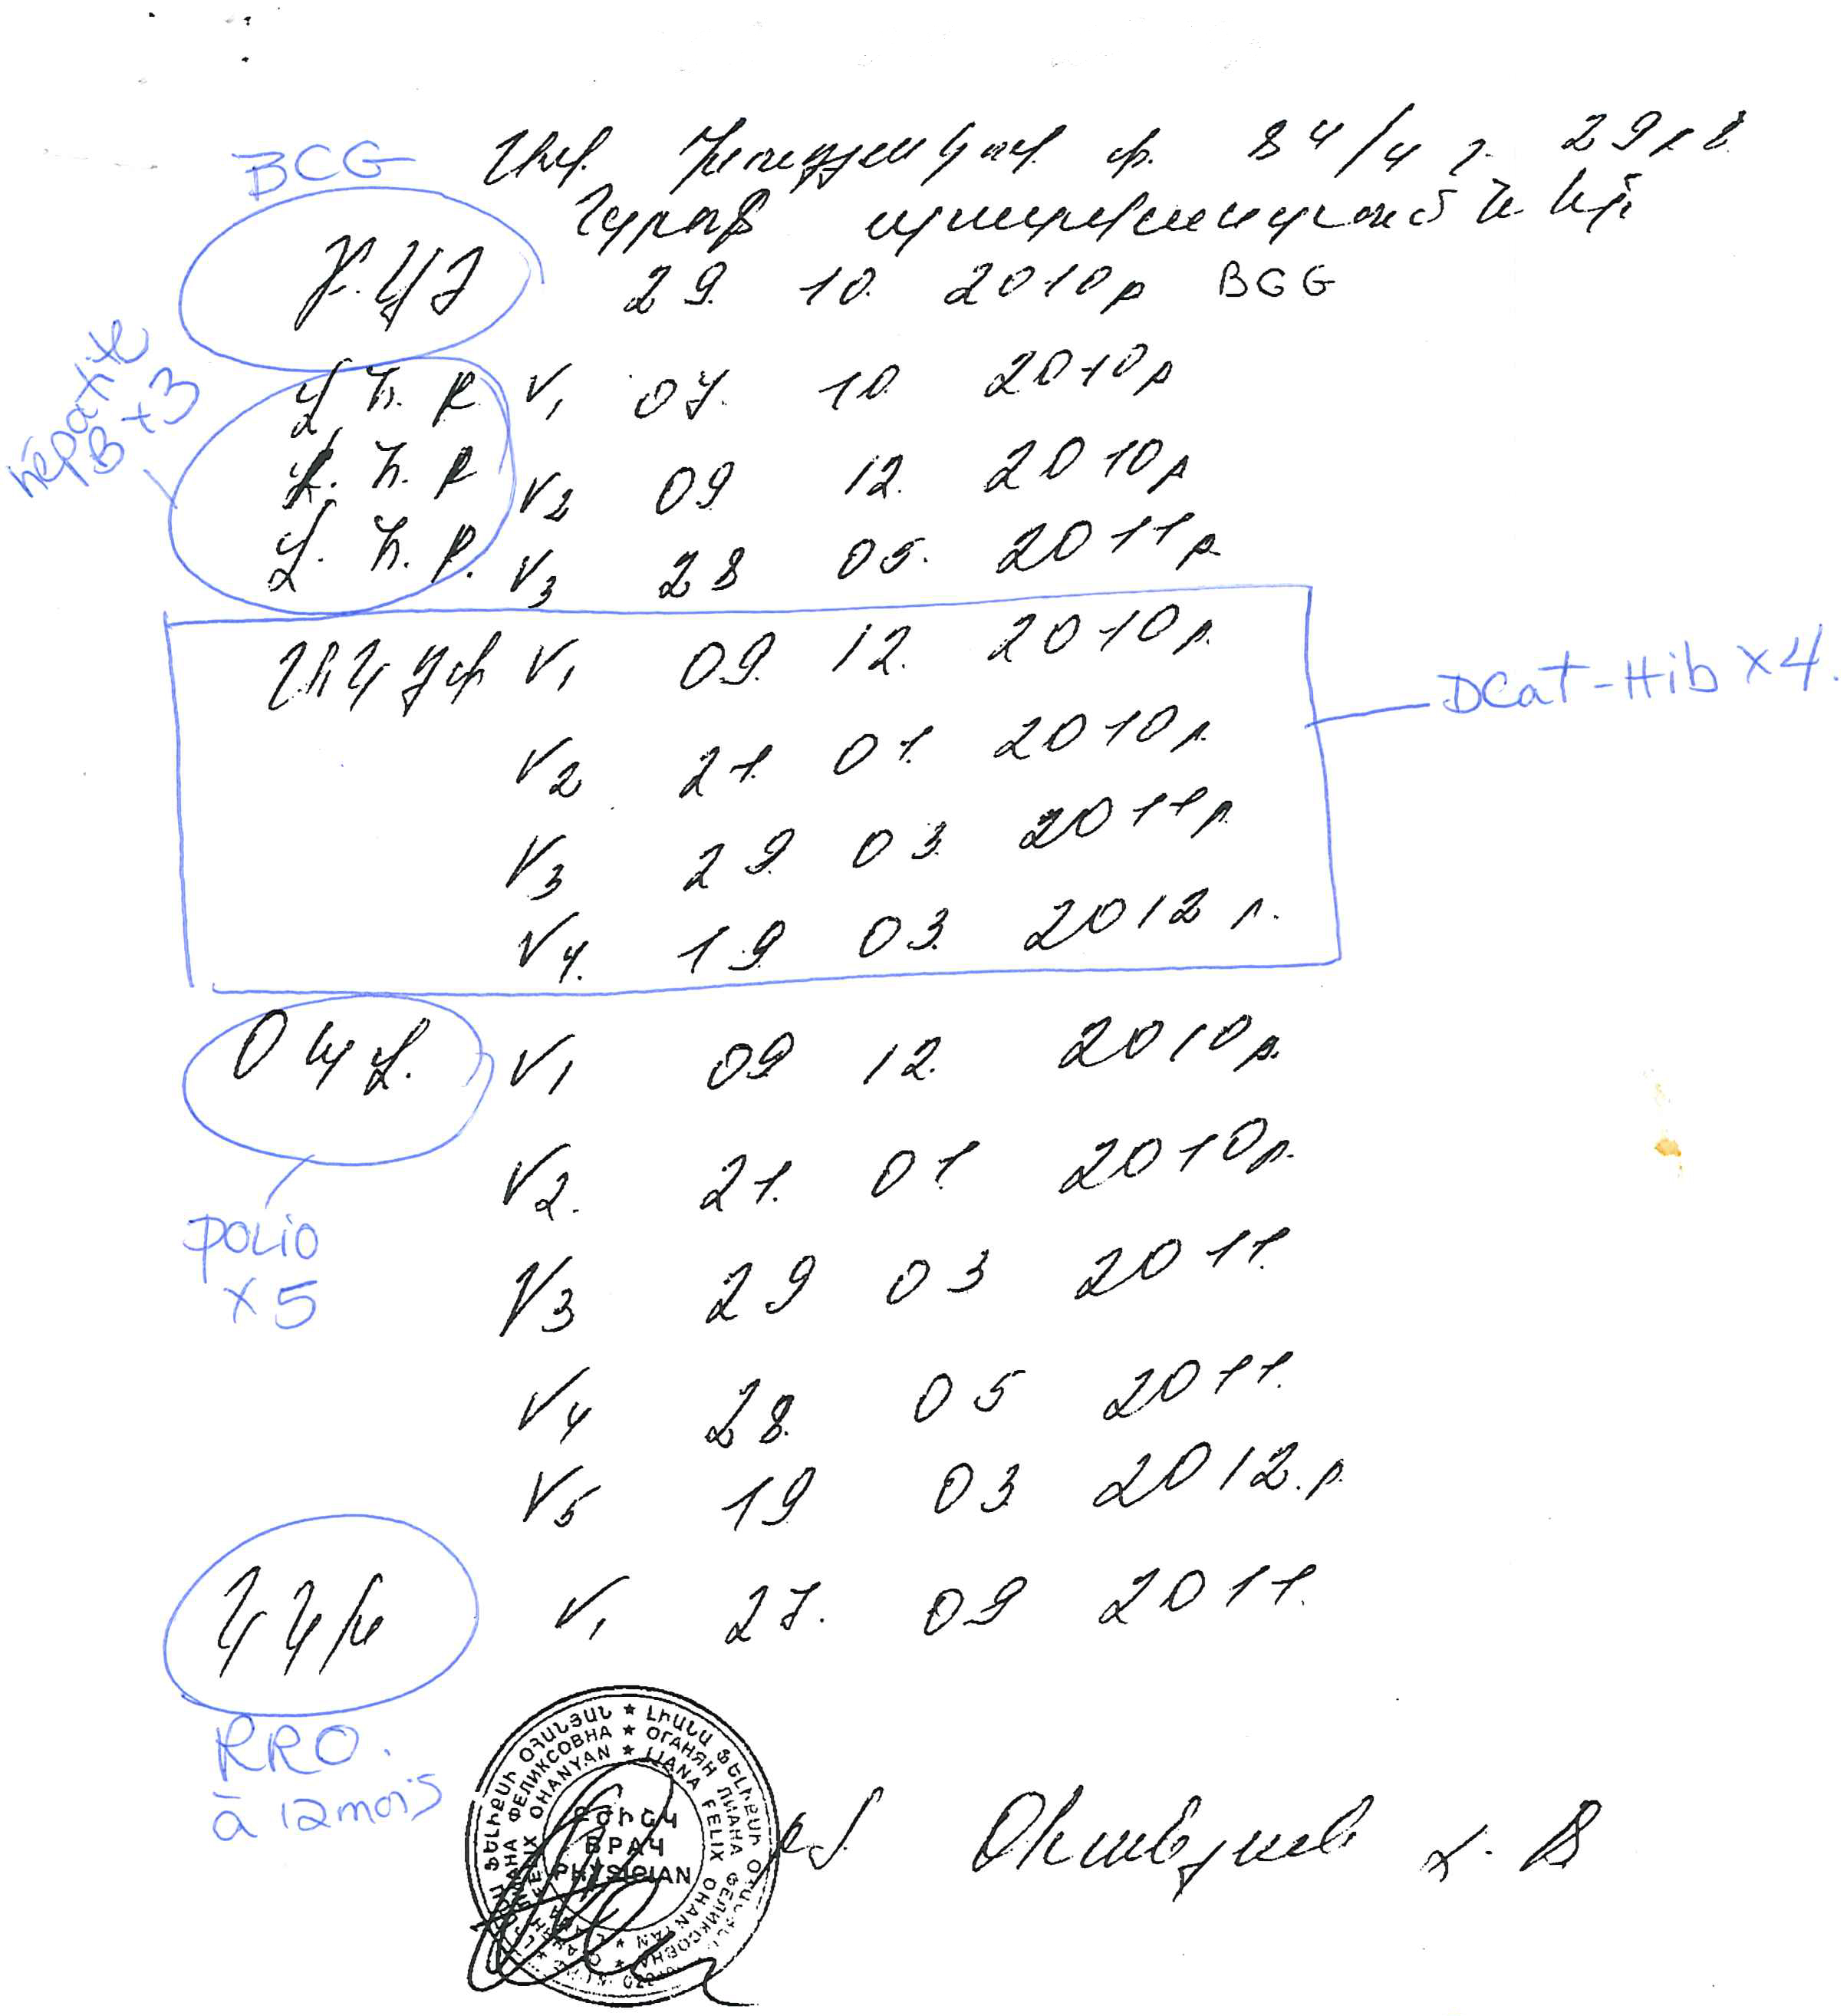 BCG
84/4
29
29. 10. 2010թ BCG
hépatite B x3
V1 07. 10. 2010թ
V2 09 12. 2010թ
V3 28 05. 2011թ.
V1 09. 12. 2010թ.
DCaT-Hib x4.
V2 21. 01. 2010թ.
V3 29. 03. 2011թ.
V4. 19. 03. 2012թ.
ՕՊՎ. V1 09 12. 2010թ.
V2. 21. 01. 2010թ.
polio
x5
V3 29 03 2011.
V4 28. 05 2011.
V5 19 03 2012.թ
ԿԿԽ V1 27. 09 2011.
RRO.
à 12 mois
ԼԻԱՆԱ ՖԵԼԻՔՍԻ ՕՀԱՆՅԱՆ
ОГАНЯН ЛИАНА ФЕЛИКСОВНА
LIANA FELIX OHANYAN
ԲԺԻՇԿ
ВРАЧ
PHYSICIAN
Օհանյան Լ. Ֆ